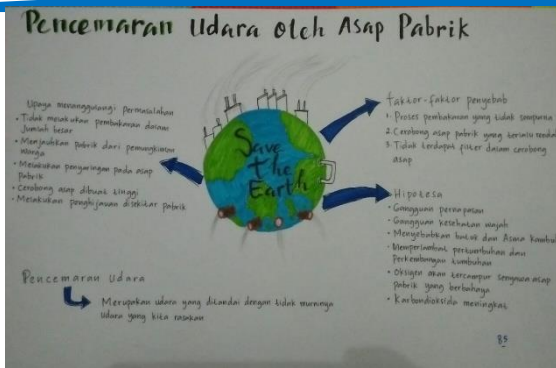 Pencemaran Udara oleh Asap Pabrik
Upaya menanggulangi permasalahan
• Tidak melakukan pembakaran dalam
Jumlah besar
• Menjauhkan pabrik dari pemungkiman
warga
• Melakukan penyaringan pada asap
pabrik
• Cerobong asap dibuat tinggi
• Melakukan penghijauan disekitar pabrik
Save
the
Earth
faktor-faktor penyebab
1. Proses pembakaran yang tidak sempurna
2. Cerobong asap pabrik yang terlalu rendah
3. Tidak terdapat filter dalam cerobong
asap
Hipotesa
• Gangguan pernapasan
• Gangguan kesehatan wajah
• Menyebabkan batuk dan Asma kambuh
• Memperlambat pertumbuhan dan
Perkembangan tumbuhan
• Oksigen akan tercampur senyawa asap
pabrik yang berbahaya
• Karbondioksida meningkat
Pencemaran Udara
Merupakan udara yang ditandai dengan tidak murninya
udara yang kita rasakan
85